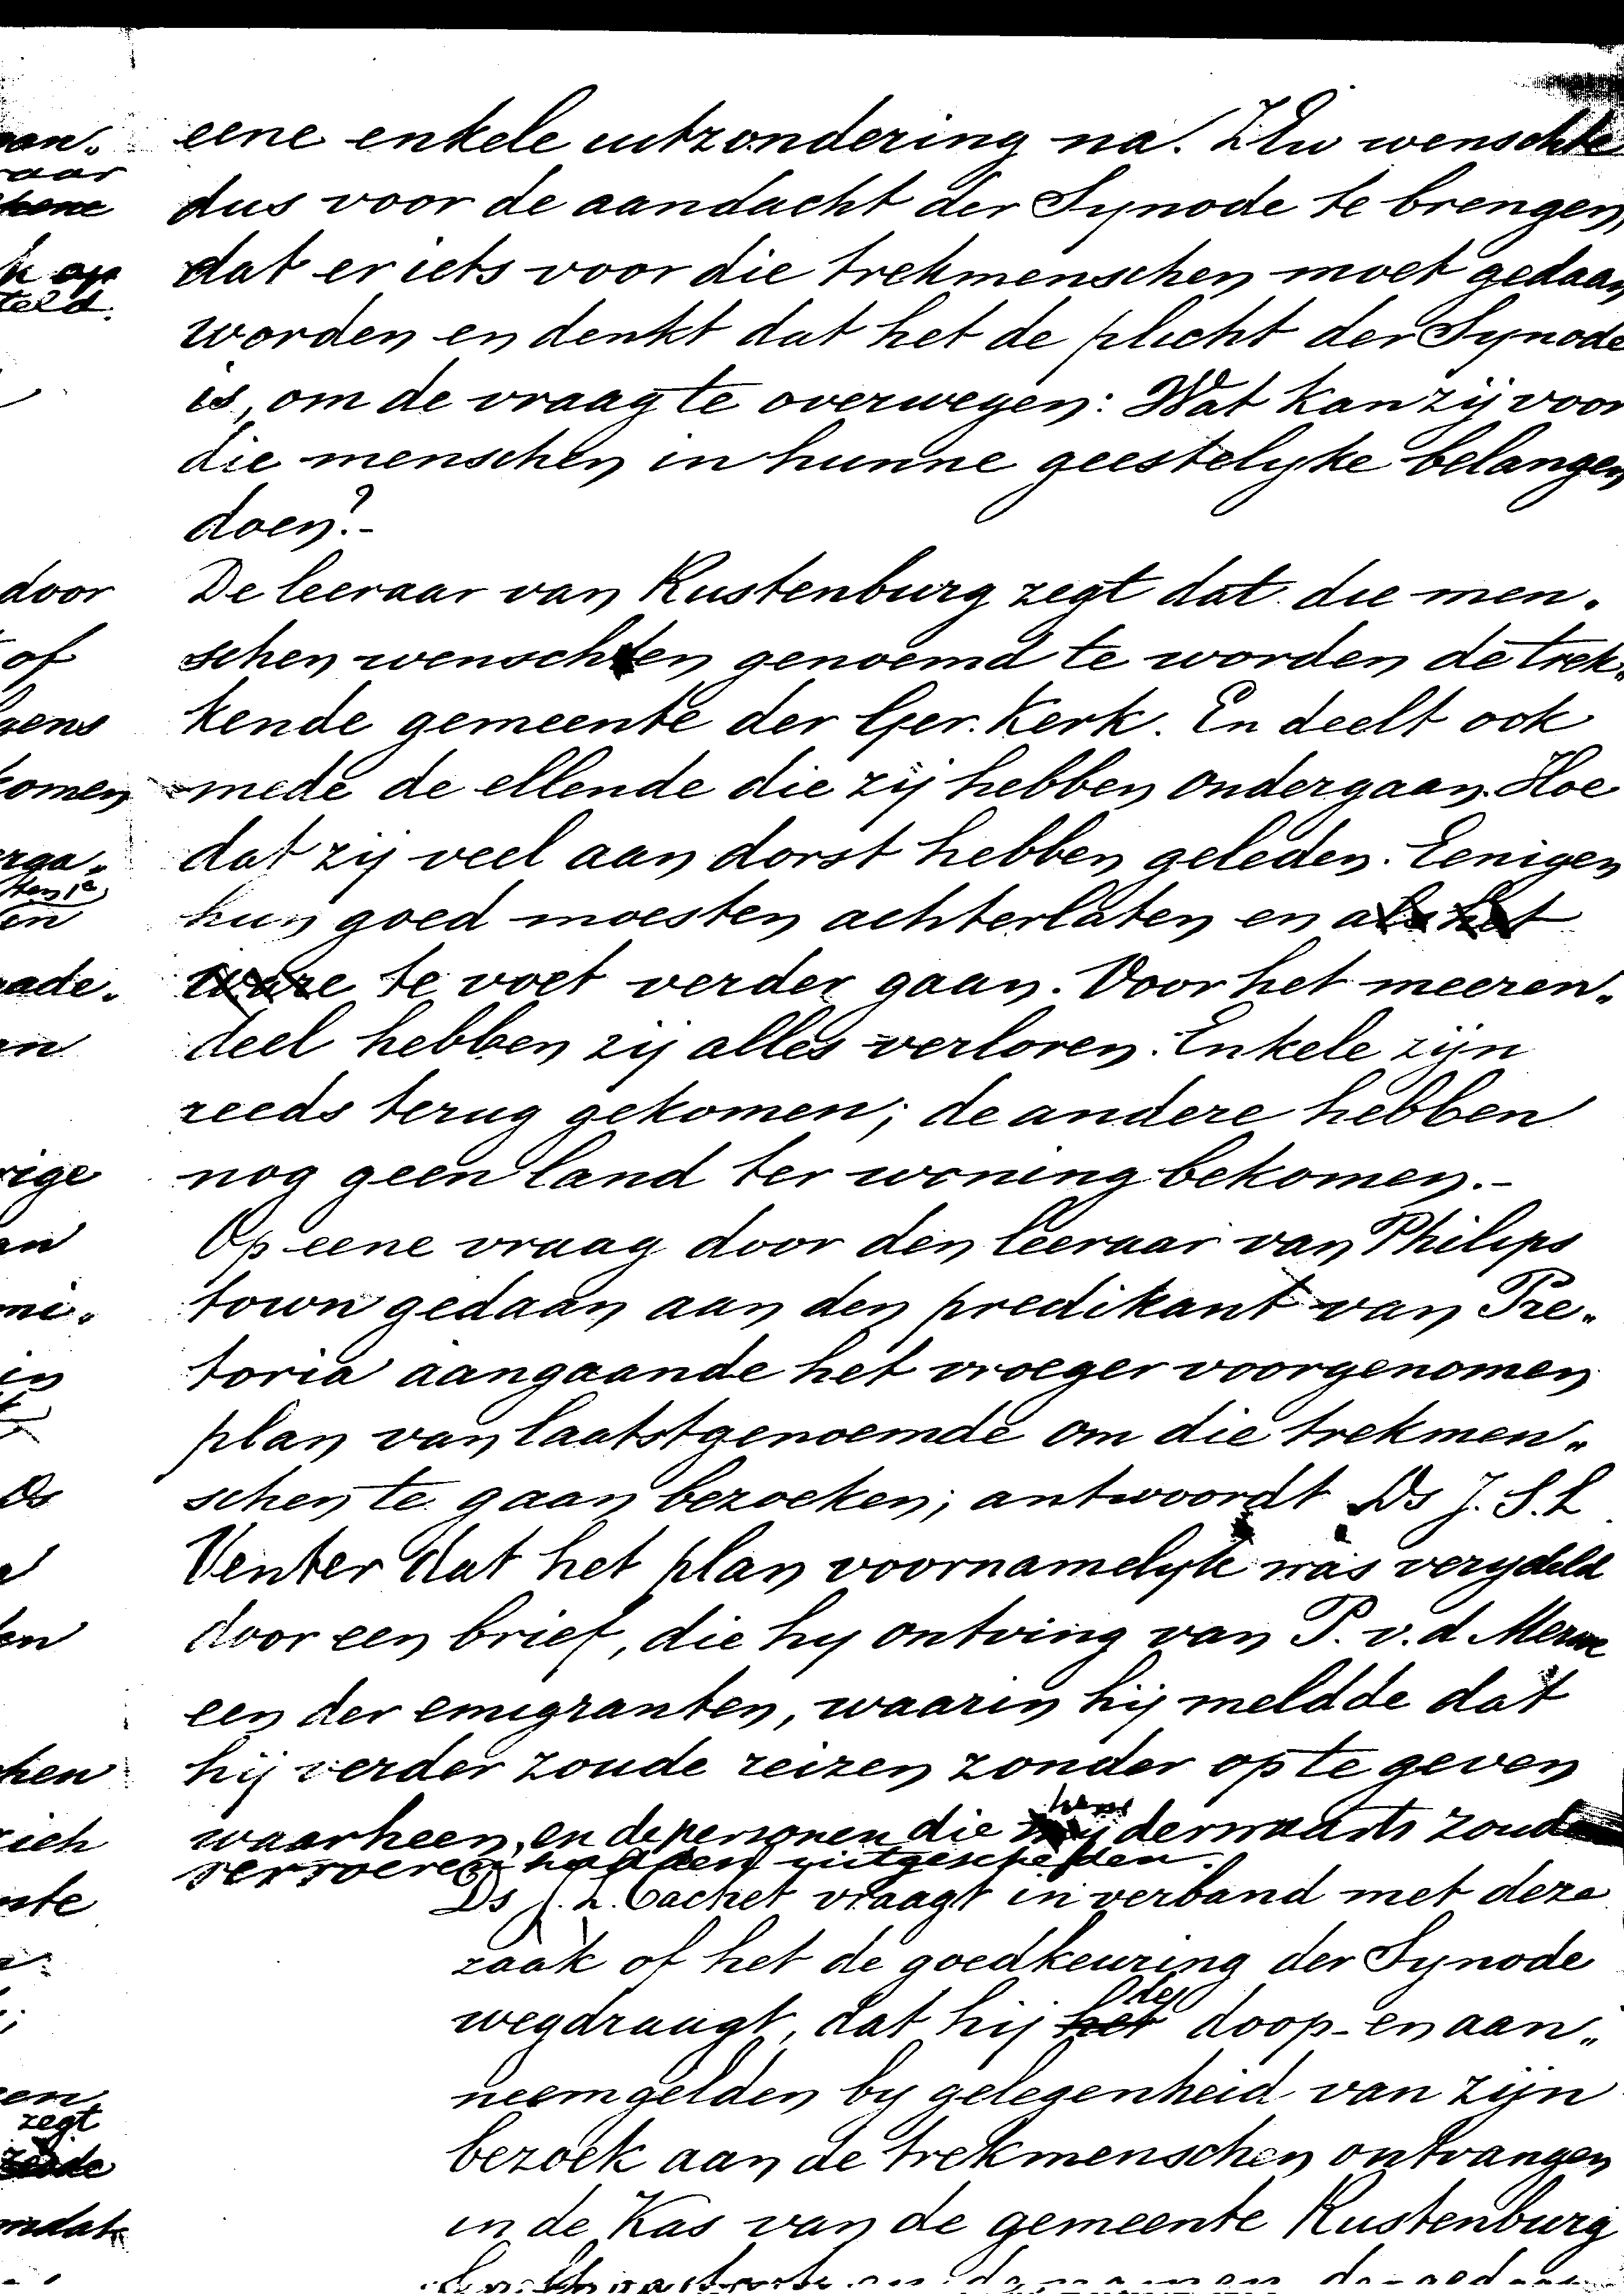 eene enkele uitzondering na. ZEw wenschte
dus voor de aandacht der Synode te brengen,
dat er iets voor die trekmenschen moet gedaan
worden en denkt dat het de plicht der Synode
is, om de vraag te overwegen: Wat kan zij voor
die menschen in hunne geestelyke belangen
doen?-
De leeraar van Rustenburg zegt dat die men„
schen wenschten genoemd te worden de trek„
kende gemeente der Ger. Kerk. En deelt ook
mede de ellende die zij hebben ondergaan. Hoe
dat zij veel aan dorst hebben geleden. Eenigen
hun goed moesten achterlaten en als het
ware te voet verder gaan. Voor het meeren„
deel hebben zij alles verloren. Enkele zijn
reeds terug gekomen; de andere hebben
nog geen land ter woning bekomen.-
Op eene vraag door den leeraar van Philips
town gedaan aan den predikant van Pre„
toria aangaande het vroeger voorgenomen
plan van laatstgenoemde om die trekmen„
schen te gaan bezoeken; antwoordt Ds J. S. L
Venter dat het plan voornamelyk was verydeld
door een brief, die hy ontving van P. v. d Merwe
een der emigranten, waarin hij meldde dat
hij verder zoude reizen zonder op te geven
waarheen, en de personen die hem derwaarts zoude
vervoeren hadden uitgescheiden.
Ds J. L. Cachet vraagt in verband met deze
zaak of het de goedkeuring der Synode
wegdraagt, dat hij het de doop- en aan„
neemgelden by gelegenheid van zijn
bezoek aan de trekmenschen ontvangen
in de Kas van de gemeente Rustenburg
door
of
komen
zegt